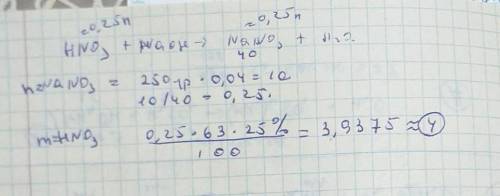 =0,25n =0,25n
HNO₃ + NaOH → NaNO₃ + H₂O
40
n=NaNO₃ = 250гр · 0,04 = 10
10/40 = 0,25.
m=HNO₃ 0,25 · 63 · 25% / 100 = 3,9375 ≈ 4